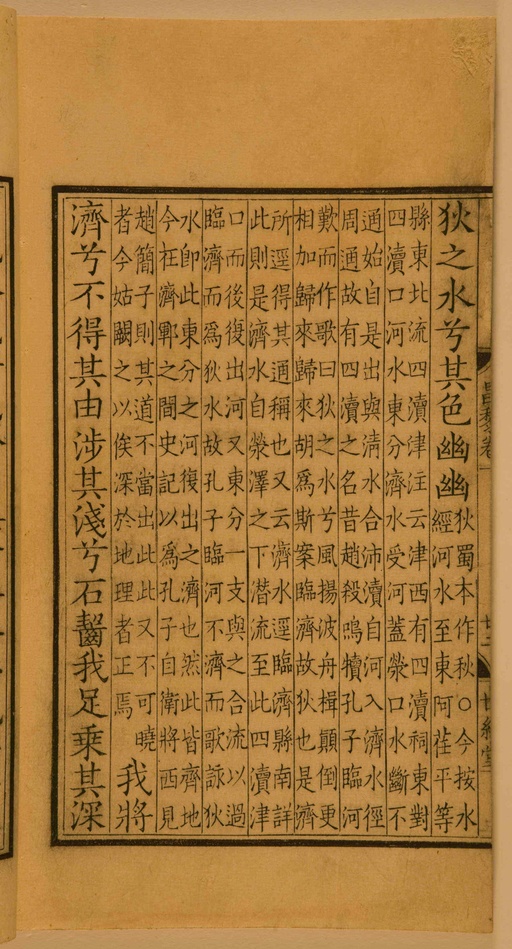 狄之水兮其色幽幽
狄蜀本作秋○今按水
經河水至東阿荏平等
縣東北流四瀆津注云津西有四瀆祠東對
四瀆口河水東分濟水受河蓋滎口水斷不
通始自是出與淸水合沛瀆自河入濟水徑
周通故有四瀆之名昔趙殺鳴犢孔子臨河
歎而作歌曰狄之水兮風揚波舟楫顛倒更
相加歸來歸來胡爲斯案臨濟故狄也是濟
所逕得其通稱也又云濟水逕臨濟縣南詳
此則是濟水自滎澤之下潛流至此四瀆津
口而後復出河又東分一支與之合流以過
臨濟而爲狄水故孔子臨河不濟而歌詠狄
水卽此東分之河復出之濟也然此皆齊地
今在濟鄆之間史記以爲孔子自衛將西見
趙簡子則其道不當出此此又不可曉
者今姑闕之以俟深於地理者正焉
我將
濟兮不得其由涉其淺兮石齧我足乘其深